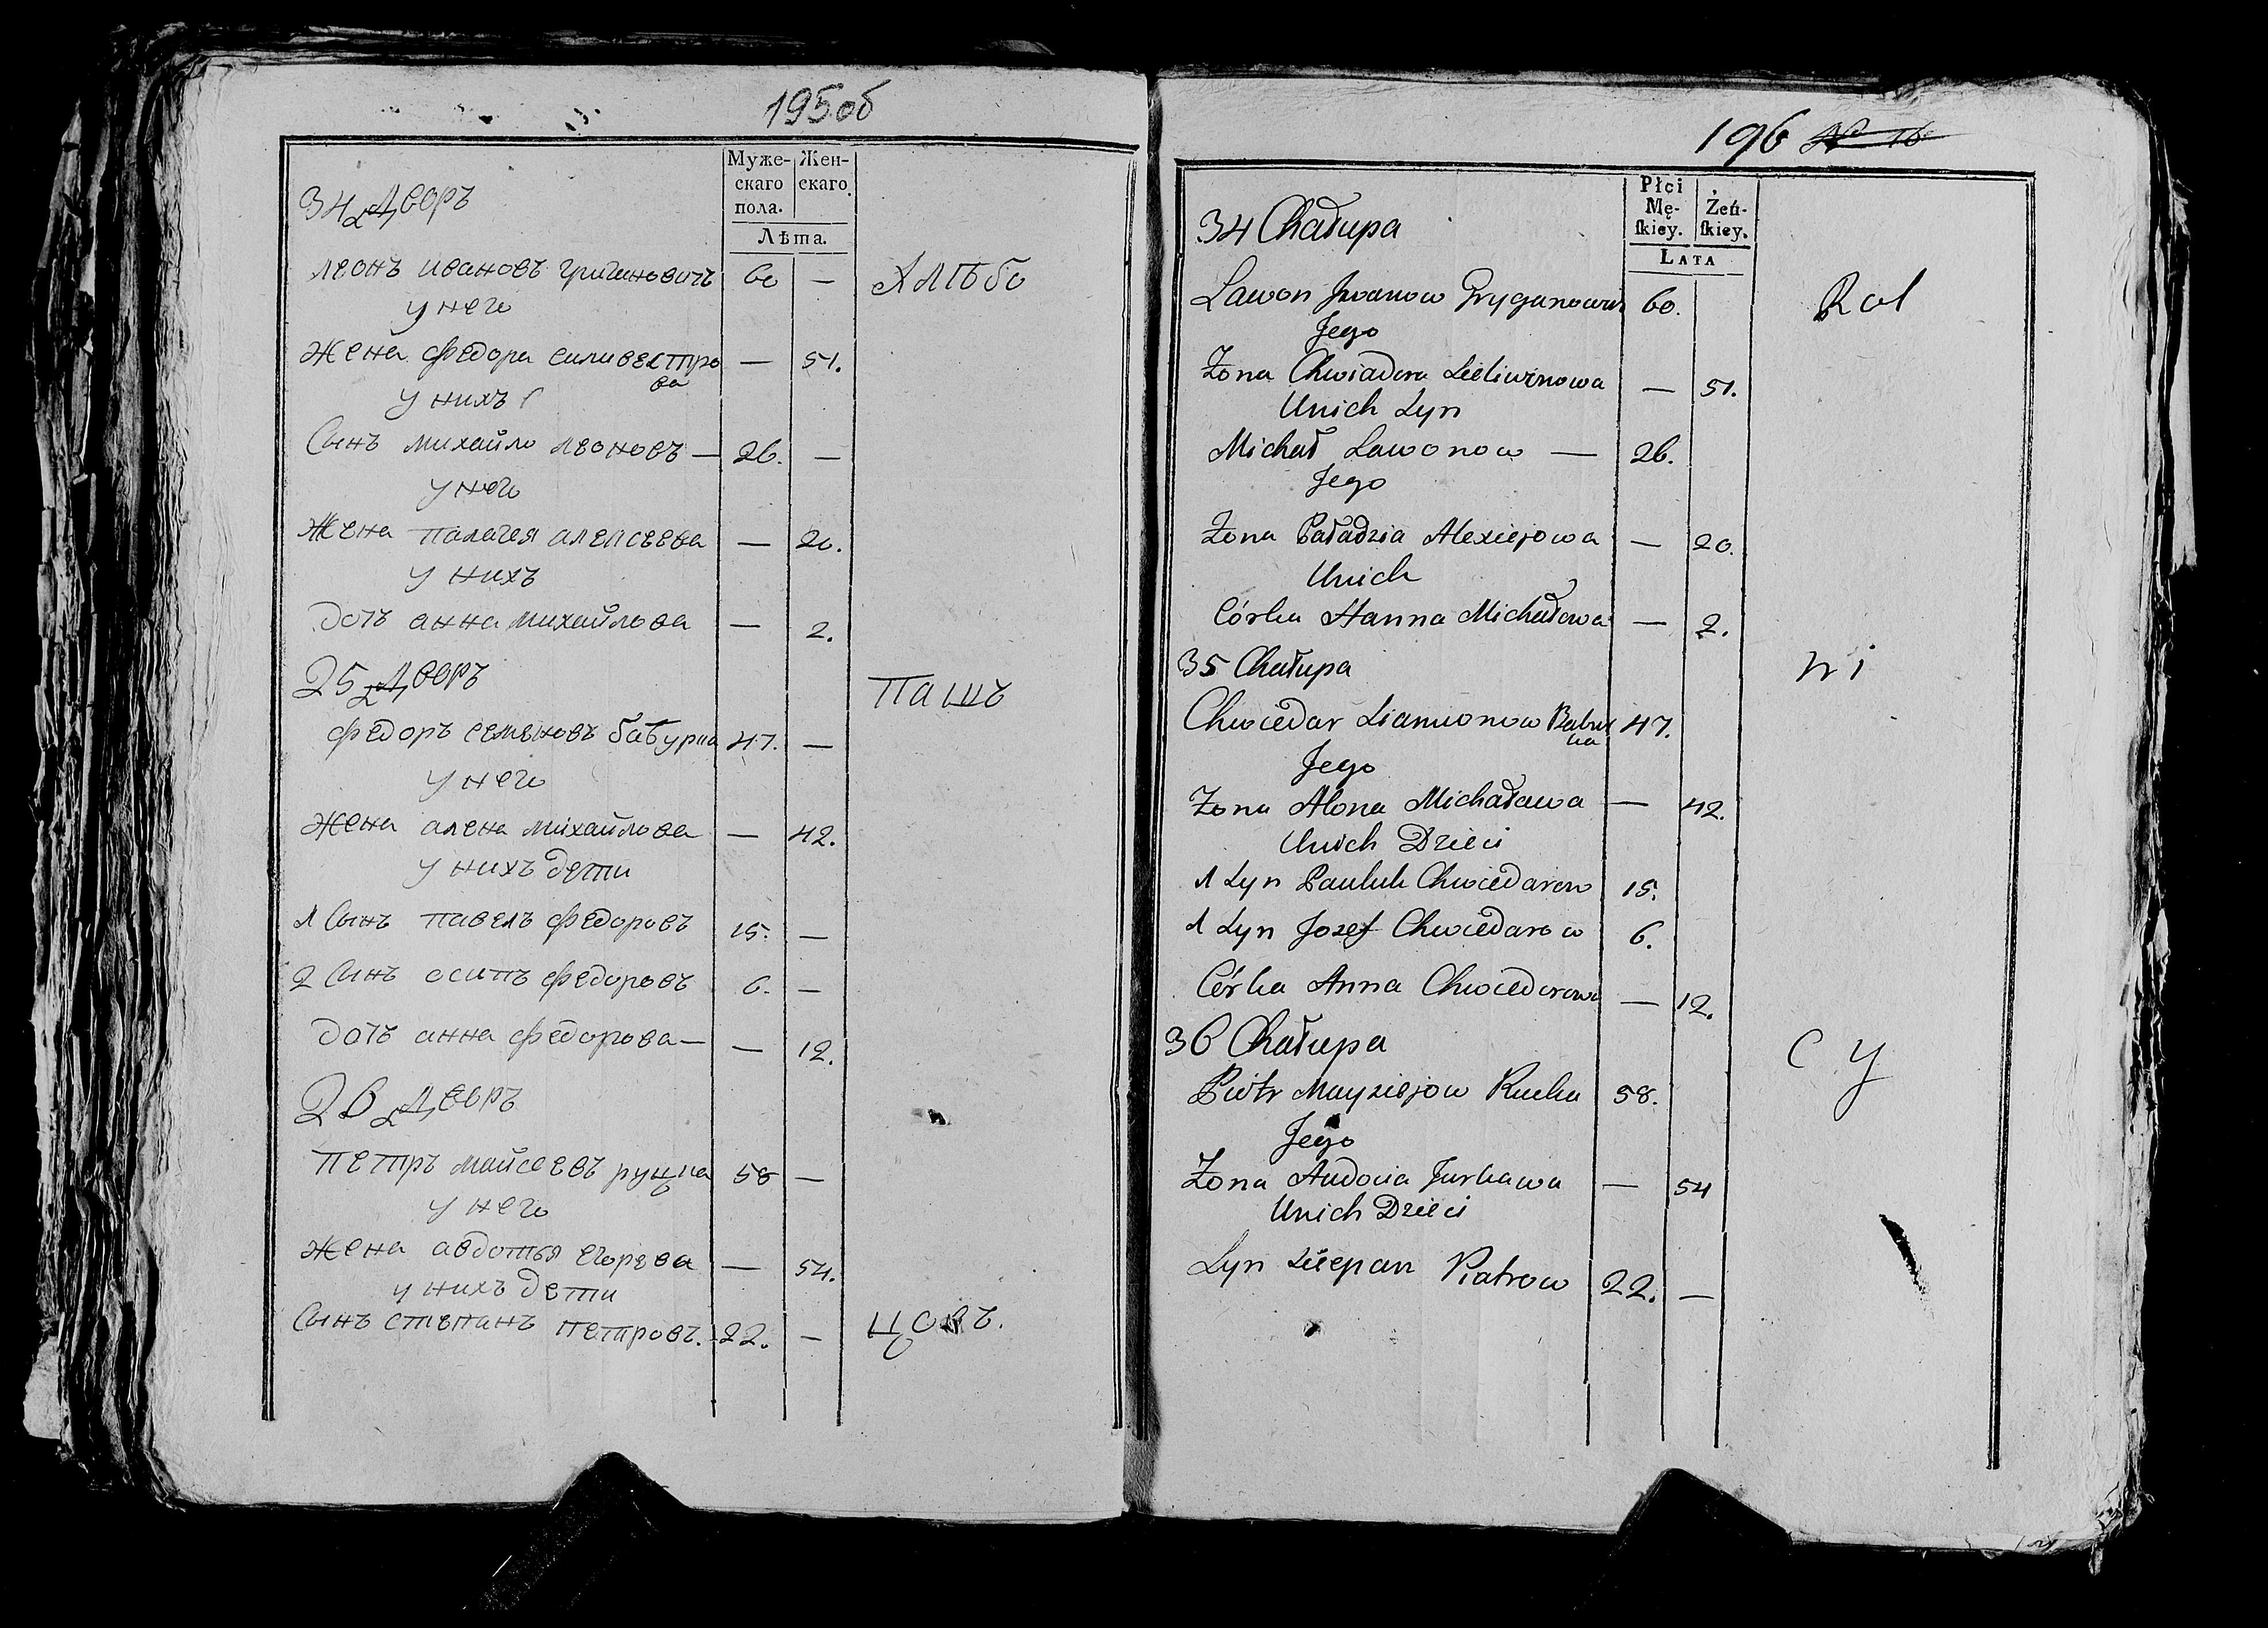 195об
Муже-
скаго
пола.
Жен-
скаго.
Лѣта.
34 Дворъ
леонъ ивановъ григиновичъ 60 — Хлѣбо
у него
Жена федора силивестро — 51.
ва
у нихъ
Сынъ михайло леоновъ — 26. —
у него
Жена палагея алексеева — 20.
у нихъ
дочь анна михайлова — 2.
25 Дворъ
пашъ
федоръ семеновъ бабурка 47. —
у него
жена алена михайлова — 42.
у нихъ дети
1 Сынъ павелъ федоровъ 15. —
2 Сынъ осипъ федоровъ 6. —
дочь анна федорова — — 12.
26 Дворъ
петръ майсеевъ 58 —
у него
жена авдотья егорева — 54.
у нихъ дети
Сынъ степанъ петровъ. 22. — цовъ.
196 № 16
Płci
Mę-
ſkiey.
Żeń-
ſkiey.
LATA
34 Chałupa
Lawon Jwanow Gryganowicz 60. Rol
Jego
Żona Chwiadora Sieliwonowa — 51.
Unich Syn
Michał Lawonow — 26.
Jego
Żona Paładzia Alexiejowa — 20.
Unich
Córka Hanna Michałowa — 2.
35 Chałupa ni
Chwiedar Siamionow Babur 47.
ka
Jego
Żona Alona Michaława — 42.
Unich Dzieci
1 Syn Pauluk Chwiedarow 15.
1 Syn Jozef Chwiedarow 6.
Córka Anna Chwiedorowa — 12.
36 Chałupa
c y
Piotr Mayziejow Rucka 58.
Jego
Żona Audocia Jurkawa — 54
Unich Dzieci
Syn Sciepan Piatrow 22. —